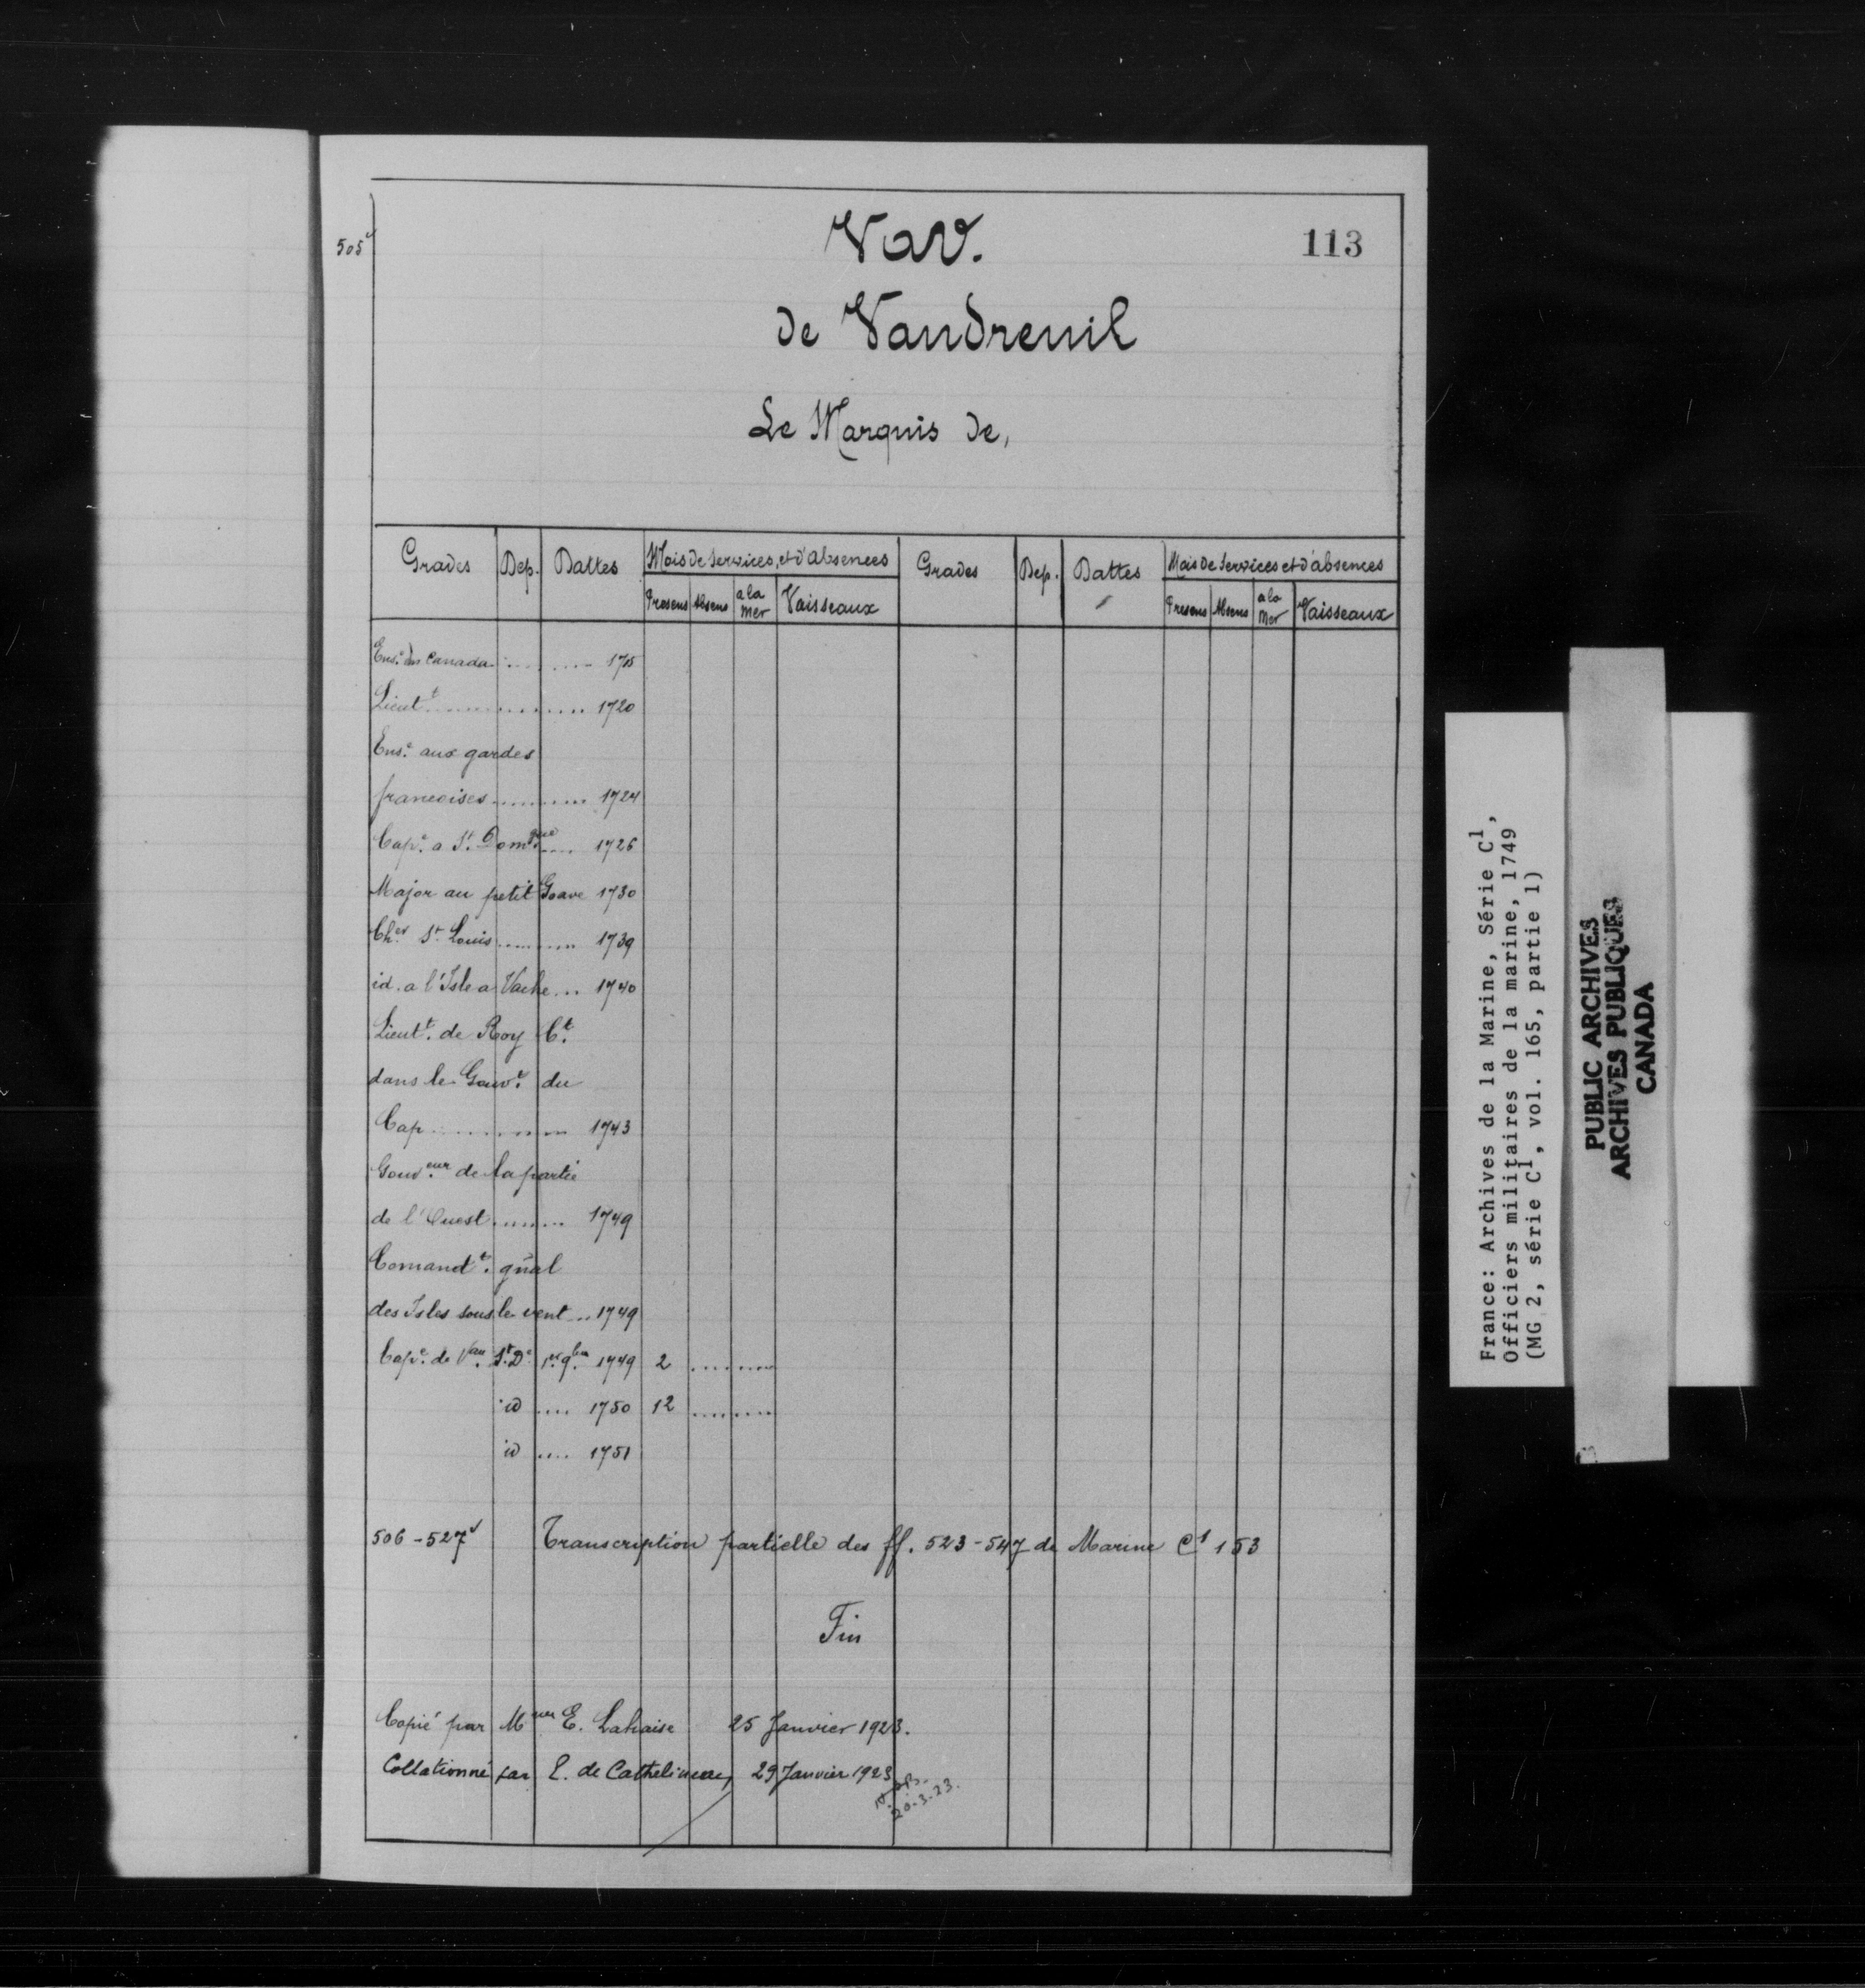 505v
Vav.
113
de Vaudreuil
Le Marquis de,
Grades Dep. Dattes Mois de Services, et d'absences Grades Dep. Dattes Mois de Services et d'absences
Presens Absens a la Mer Vaisseaux Presens Absens a la Mer Vaisseaux
Ens.e en Canada ........ 1715
Lieut.t ........ 1720
Ens.e aux gardes
francoises ........ 1724
Cap.e a St. Domgue .... 1726
Major au petit Goave 1730
Ch.er St. Louis ........ 1739
id. a l'Isle a Vache ... 1740
Lieut.t de Roy C.t
dans le Gouv.t du
Cap ........ 1743
Gouv.eur de la partie
de l'Ouest ........ 1749
Comand.t gñal
des Isles sous le vent .. 1749
Cap.e de V.au St. D.e 1er 9bre 1749 2 ........
id .... 1750 12 ........
id .... 1751
506-527v Transcription partielle des ff. 523-547 de Marine C1 153
Fin
Copié par E. Lahaise 25 Janvier 1923.
Collationné par E. de Cathelineau 29 Janvier 1923
20.3.23.
France: Archives de la Marine, Série C1,
Officiers militaires de la marine, 1749
(MG 2, série C1, vol. 165, partie 1)
PUBLIC ARCHIVES
ARCHIVES PUBLIQUES
CANADA